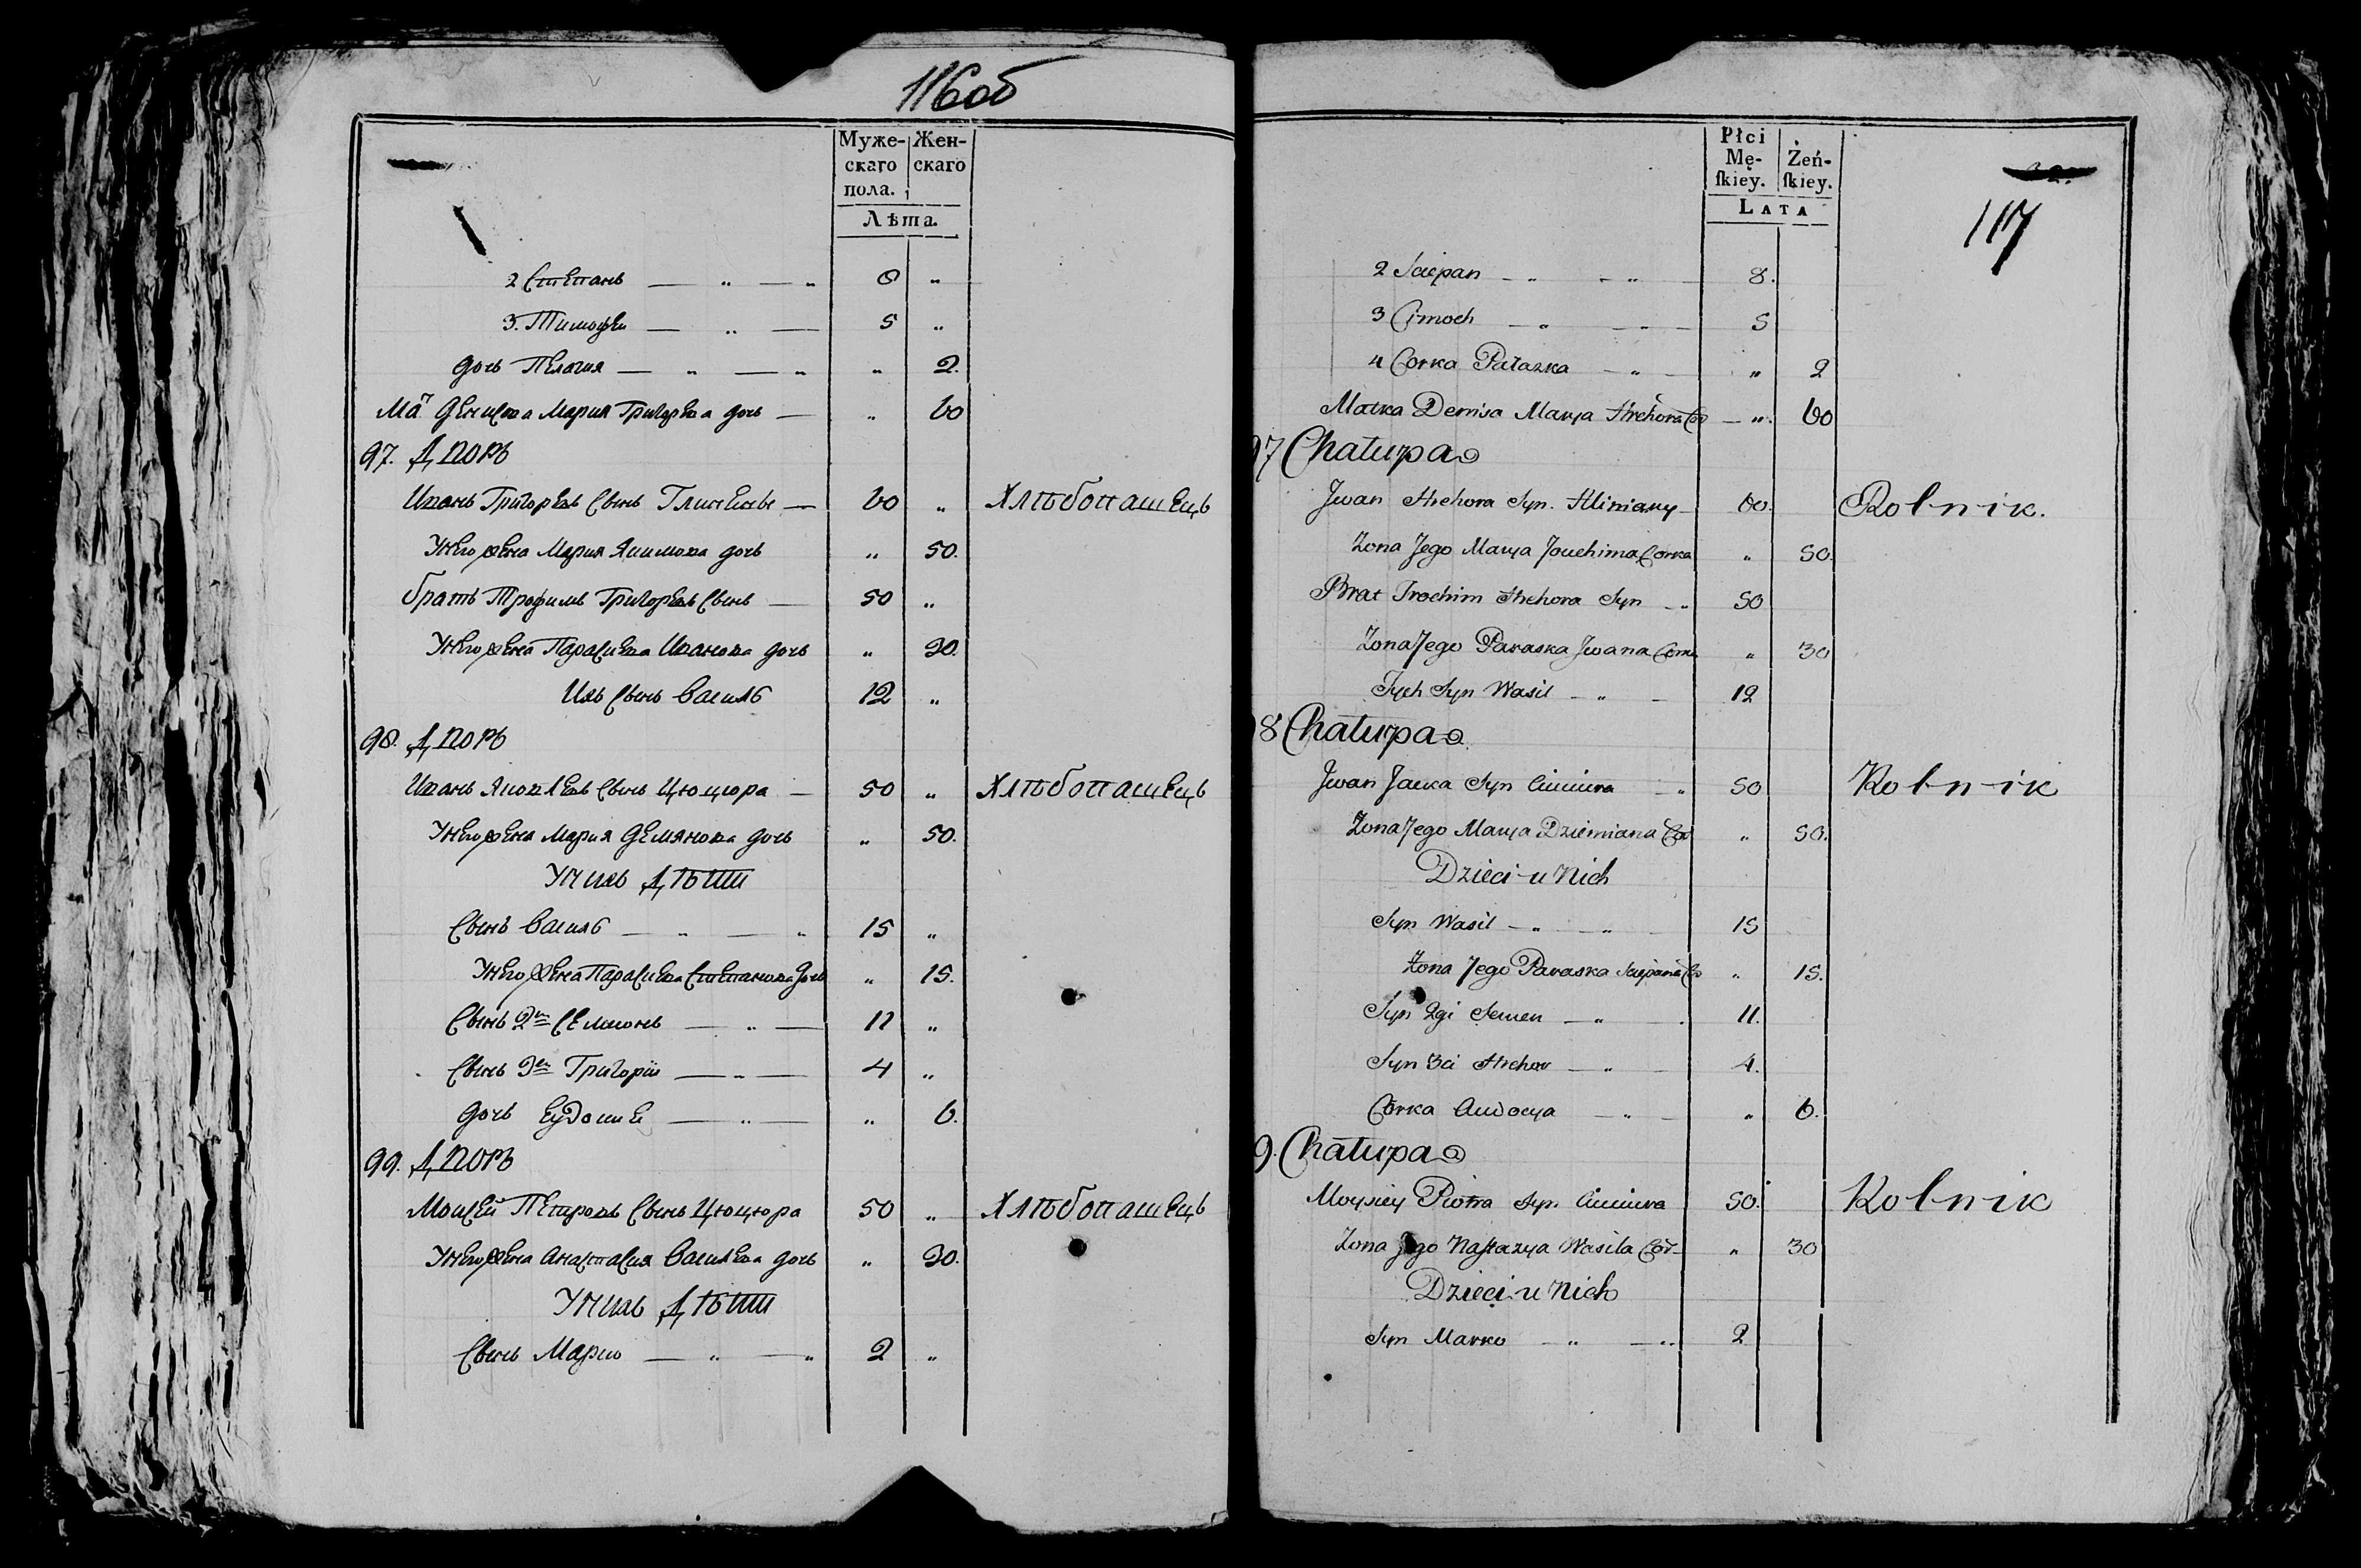 116об
Муже- Жен-
скаго скаго
пола.
Лѣта.
2 Степанъ — „ — „ 8 „
3. Тимофей — „ — 5 „
дочь Пелагия — „ — „ „ 2.
Мат Денисова Мария Григорьева дочь — „ 60
97. Дворъ
Иванъ Григорьевъ Сынъ — 60 „ Хлѣбопашецъ
У него жена Мария Якимова дочь „ 50.
братъ Трофимъ Григорьевъ Сынъ — 50 „
У него жена Параскева Иванова дочь „ 30.
Ихъ Сынъ Василь 12 „
98. Дворъ
Иванъ Яковлевъ Сынъ Цюцюра — 50 „ Хлѣбопашецъ
У него жена Мария Демянова дочь „ 50.
У нихъ Дѣти
Сынъ Василь — „ — „ 15 „
У него жена Параскева Степанова дочь „ 15.
Сынъ 2й Семионъ — „ — 11 „
Сынъ 3й Григорiй — „ — 4 „
дочь — „ — „ 6.
99. Дворъ
Моисей Петровъ Сынъ Цюцюра 50 „ Хлѣбопашецъ
У него жена Анастасия Васильева дочь „ 30.
У нихъ Дѣти
Сынъ Марко — „ — „ 2 „
Płci
Mę- Żeń-
ſkiey. ſkiey.
LATA
117
2 Sciepan — „ — „ — 8.
3 Cimoch — „ — „ — 5
4 Corka Pałazka — „ — „ 2
Matka Denisa Marya Hrehora Co — „. 60
97 Chałupa
Jwan Hrehora Syn. Hliniany — 60. Rolnik.
Zona Jego Marya Jouchima Corka „ 50.
Brat Trochim Hrehora Syn — „ 50
Zona Jego Paraska Jwana Corka „ 30
Tych Syn Wasil — „ — 12
8 Chałupa
Jwan Jacka Syn Ciuciura — „ 50 Rolnik
Zona Jego Marya Dziemiana Cor „ 50.
Dzieci u Nich
Syn Wasil — „ — „ 15
Zona Jego Paraska Sciepana Co „ 15.
Syn 2gi Semen — „ . 11.
Syn 3ci Hrehor — „ — 4.
Corka Audocya — „ — „ 6.
9. Chałupa
Moysiey Piotra Syn Ciuciura 50. Rolnik
Zona Jego Naſtazya Wasila Cor — „ 30
Dzieci u Nich
Syn Marko — „ — „ 2